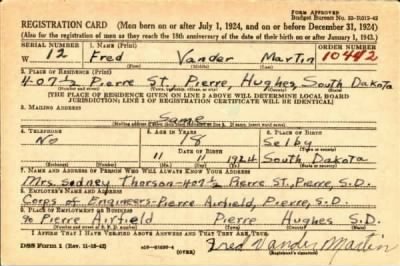 FORM APPROVED
Budget Bureau No. 33-R012-42
REGISTRATION CARD (Men born on or after July 1, 1924, and on or before December 31, 1924)
(Also for the registration of men as they reach the 18th anniversary of the date of their birth on or after January 1, 1943.)
SERIAL NUMBER 1. NAME (Print) ORDER NUMBER
W 12 Fred Vander Martin 10442
2. PLACE OF RESIDENCE (Print)
407½ Pierre St., Pierre Hughes, South Dakota
[THE PLACE OF RESIDENCE GIVEN ON LINE 2 ABOVE WILL DETERMINE LOCAL BOARD
JURISDICTION; LINE 2 OF REGISTRATION CERTIFICATE WILL BE IDENTICAL]
3. MAILING ADDRESS
Same
4. TELEPHONE 5. AGE IN YEARS 6. PLACE OF BIRTH
No 18 Selby
DATE OF BIRTH
11 11 1924 South Dakota
7. NAME AND ADDRESS OF PERSON WHO WILL ALWAYS KNOW YOUR ADDRESS
Mrs. Sodney Thorson-407½ Pierre St., Pierre, S.D.
8. EMPLOYER'S NAME AND ADDRESS
Corps of Engineers-Pierre Airfield, Pierre, S.D.
9. PLACE OF EMPLOYMENT OR BUSINESS
% Pierre Airfield Pierre Hughes S.D.
I AFFIRM THAT I HAVE VERIFIED ABOVE ANSWERS AND THAT THEY ARE TRUE.
DSS Form 1 (Rev. 11-16-42) (OVER) Fred Vander Martin